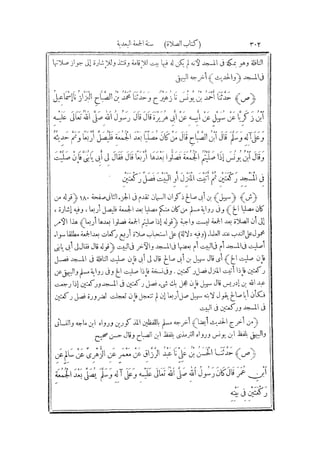 ٣٠٢ (كتاب الصلاة) سنة الجمعة البعدية
النافلة وهو بمكة فى المسجد لأنه لم يكن له فيها بيت للإقامة وقتئذ وللإشارة إلى جواز صلاتها
فى المسجد (والحديث) أخرجه البيهقى
(ص) حَدَّثَنَا أَحْمَدُ بْنُ يُونُسَ نَا زُهَيْرٌ ح وَحَدَّثَنَا مُحَمَّدُ بْنُ الصَّبَّاحِ الْبَزَّازُ نَا إِسْمَاعِيلُ
ابْنُ زَكَرِيَّا عَنْ سُهَيْلٍ عَنْ أَبِيهِ عَنْ أَبِى هُرَيْرَةَ قَالَ قَالَ رَسُولُ اللهِ صَلَّى اللهُ تَعَالَى عَلَيْهِ
وَعَلَى آلِهِ وَسَلَّمَ قَالَ ابْنُ الصَّبَّاحِ قَالَ مَنْ كَانَ مُصَلِّيًا بَعْدَ الْجُمُعَةِ فَلْيُصَلِّ أَرْبَعًا وَتَمَّ حَدِيثُهُ
وَقَالَ ابْنُ يُونُسَ إِذَا صَلَّيْتُمُ الْجُمُعَةَ فَصَلُّوا بَعْدَهَا أَرْبَعًا قَالَ فَقَالَ لِى أَبِى يَا بُنَىَّ فَإِنْ صَلَّيْتَ
فِى الْمَسْجِدِ رَكْعَتَيْنِ ثُمَّ أَتَيْتَ الْمَنْزِلَ أَوِ الْبَيْتَ فَصَلِّ رَكْعَتَيْنِ
(ش) (سهيل) بن أبى صالح ذكوان السمان تقدم فى الجزء الثانى صفحة ١٨٠ (قوله من
كان مصليا الخ) وفى رواية مسلم من كان منكم مصليا بعد الجمعة فليصل أربعا. وفيه إشارة
إلى أن الصلاة بعد الجمعة ليست واجبة (قوله إذا صليتم الجمعة فصلوا بعدها أربعا) هذا الأمر
محمول على الندب عند العلماء (وفيه دلالة) على استحباب صلاة أربع ركعات بعد الجمعة مطلقا سواء
أصليت فى المسجد أم فى البيت أم بعضها فى المسجد والآخر فى البيت (قوله قال فقال لى أبى يا بنى
فإن صليت الخ) أى قال سهيل بن أبى صالح قال لى أبى فإن صليت النافلة فى المسجد فصل
ركعتين فإذا أتيت المنزل فصل ركعتين. وفى نسخة فإذا صليت الخ وفى رواية مسلم والبيهقى عن
عبد الله بن إدريس قال سهيل فإن عجل بك شىء فصل ركعتين فى المسجد وركعتين إذا رجعت
فكأن أبا صالح يقول لابنه سهيل صل أربعا إن لم تتعجل فإن تعجلت لضرورة فصل ركعتين
فى المسجد وركعتين فى البيت
(من أخرج الحديث أيضا) أخرجه مسلم باللفظين المذكورين ورواه ابن ماجه والنسائى
والبيهقى بلفظ ابن يونس ورواه الترمذى بلفظ ابن الصباح وقال حسن صحيح
(ص) حَدَّثَنَا الْحَسَنُ بْنُ عَلِىٍّ نَا عَبْدُ الرَّزَّاقِ عَنْ مَعْمَرٍ عَنِ الزُّهْرِىِّ عَنْ سَالِمٍ عَنِ
ابْنِ عُمَرَ قَالَ كَانَ رَسُولُ اللهِ صَلَّى اللهُ تَعَالَى عَلَيْهِ وَعَلَى آلِهِ وَسَلَّمَ يُصَلِّى بَعْدَ الْجُمُعَةِ
رَكْعَتَيْنِ فِى بَيْتِهِ